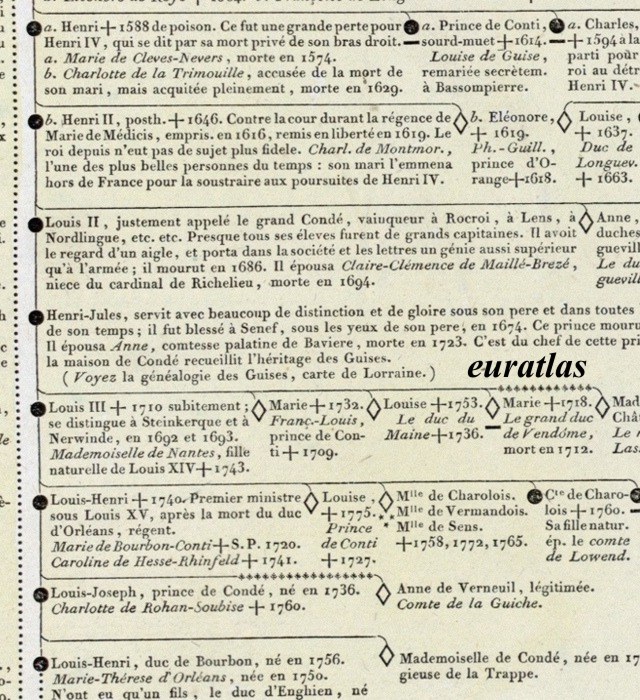 a. Henri + 1588 de poison. Ce fut une grande perte pour
Henri IV, qui se dit par sa mort privé de son bras droit.
a. Marie de Cleves-Nevers, morte en 1574.
b. Charlotte de la Trimouille, accusée de la mort de
son mari, mais acquitée pleinement, morte en 1629.
a. Prince de Conti,
sourd-muet + 1614.
Louise de Guise,
remariée secrètem.
à Bassompierre.
a. Charles,
+ 1594 à la
parti pour
roi au détr
Henri IV.
b. Henri II, posth. + 1646. Contre la cour durant la régence de
Marie de Médicis, empris. en 1616, remis en liberté en 1619. Le
roi depuis n'eut pas de sujet plus fidele. Charl. de Montmor.,
l'une des plus belles personnes du temps : son mari l'emmena
hors de France pour la soustraire aux poursuites de Henri IV.
b. Eléonore,
+ 1619.
Ph.-Guill.,
prince d'O-
range + 1618.
Louise,
+ 1637.
Duc de
Longuev.
+ 1663.
Louis II, justement appelé le grand Condé, vainqueur à Rocroi, à Lens, à
Nordlingue, etc. etc. Presque tous ses éleves furent de grands capitaines. Il avoit
le regard d'un aigle, et porta dans la société et les lettres un génie aussi supérieur
qu'à l'armée ; il mourut en 1686. Il épousa Claire-Clémence de Maillé-Brezé,
niece du cardinal de Richelieu, morte en 1694.
Anne,
duches
guevill
Le du
guevill
Henri-Jules, servit avec beaucoup de distinction et de gloire sous son pere et dans toutes
de son temps ; il fut blessé à Senef, sous les yeux de son pere, en 1674. Ce prince mouru
Il épousa Anne, comtesse palatine de Baviere, morte en 1723. C'est du chef de cette pri
la maison de Condé recueillit l'héritage des Guises.
( Voyez la généalogie des Guises, carte de Lorraine. )
euratlas
Louis III + 1710 subitement ;
se distingue à Steinkerque et à
Nerwinde, en 1692 et 1693.
Mademoiselle de Nantes, fille
naturelle de Louis XIV + 1743.
Marie + 1732.
Franç.-Louis,
prince de Con-
ti + 1709.
Louise + 1753.
Le duc du
Maine + 1736.
Marie + 1718.
Le grand duc
de Vendôme,
mort en 1712.
Mad
Chât
Le
Las
Louis-Henri + 1740. Premier ministre
sous Louis XV, après la mort du duc
d'Orléans, régent.
Marie de Bourbon-Conti + S.P. 1720.
Caroline de Hesse-Rhinfeld + 1741.
Louise,
+ 1775.
Prince
de Conti
+ 1727.
Mlle de Charolois.
Mlle de Vermandois.
Mlle de Sens.
+ 1758, 1772, 1765.
Cte de Charo-
lois + 1760.
Sa fille natur.
ép. le comte
de Lowend.
Louis-Joseph, prince de Condé, né en 1736.
Charlotte de Rohan-Soubise + 1760.
Anne de Verneuil, légitimée.
Comte de la Guiche.
Louis-Henri, duc de Bourbon, né en 1756.
Marie-Thérese d'Orléans, née en 1750.
N'ont eu qu'un fils, le duc d'Enghien, né
Mademoiselle de Condé, née en 17
gieuse de la Trappe.